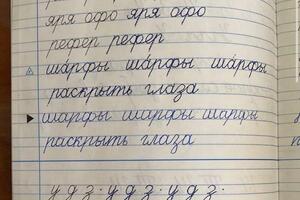 яря офо яря офо
рефер рефер
ша́рфы ша́рфы ша́рфы
раскрыть глаза
шарфы шарфы шарфы
раскрыть глаза
у д з · у д з · у д з ·